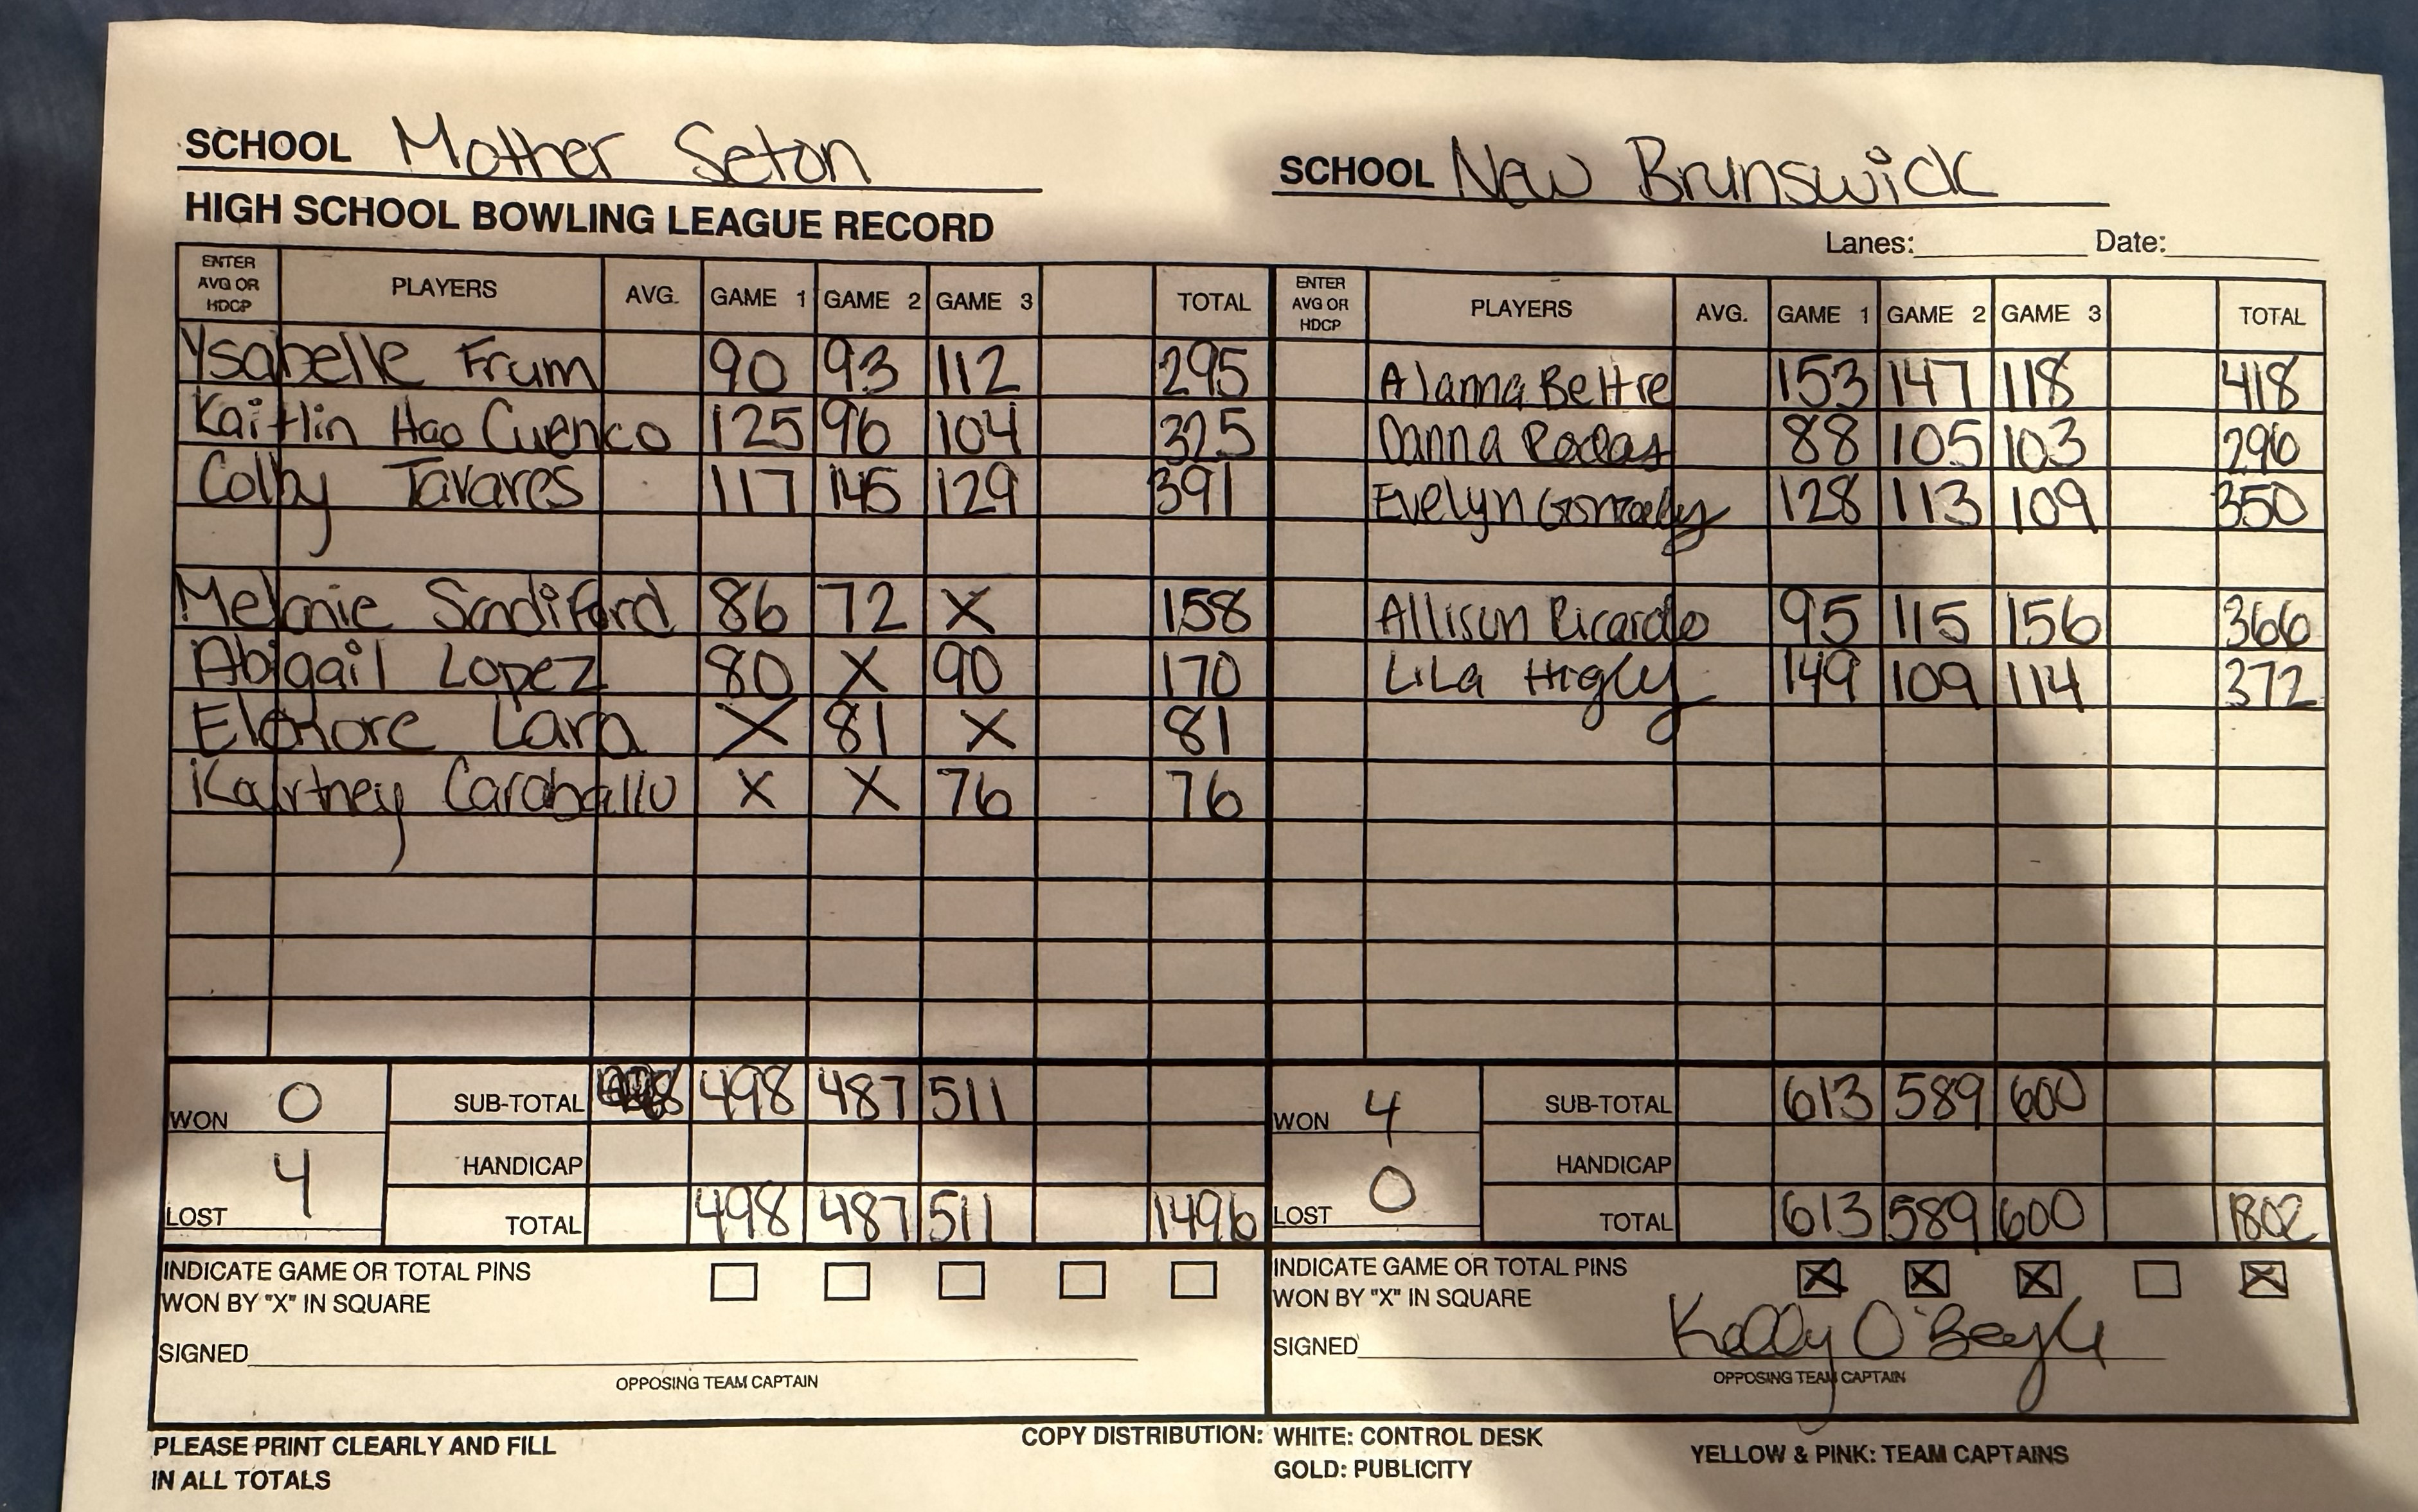 SCHOOL Mother Seton
SCHOOL New Brunswick
HIGH SCHOOL BOWLING LEAGUE RECORD
Lanes: Date:
ENTER AVG OR HDCP PLAYERS AVG. GAME 1 GAME 2 GAME 3 TOTAL
Ysabelle Frum 90 93 112 295
Kaitlin Hao Cuenco 125 96 104 325
Colby Tavares 117 145 129 391
Melanie Sandiford 86 72 X 158
Abigail Lopez 80 X 90 170
Elenore Lara X 81 X 81
Kourtney Caraballo X X 76 76
WON 0
LOST 4
SUB-TOTAL 498 487 511
HANDICAP
TOTAL 498 487 511 1496
INDICATE GAME OR TOTAL PINS
WON BY "X" IN SQUARE
SIGNED
OPPOSING TEAM CAPTAIN
ENTER AVG OR HDCP PLAYERS AVG. GAME 1 GAME 2 GAME 3 TOTAL
Alanna Beltre 153 147 118 418
Danna 88 105 103 296
Evelyn 128 113 109 350
Allison Ricardo 95 115 156 366
LiLa Higly 149 109 114 372
WON 4
LOST 0
SUB-TOTAL 613 589 600
HANDICAP
TOTAL 613 589 600 1802
INDICATE GAME OR TOTAL PINS
WON BY "X" IN SQUARE
X X X X
SIGNED Kelly
OPPOSING TEAM CAPTAIN
PLEASE PRINT CLEARLY AND FILL
IN ALL TOTALS
COPY DISTRIBUTION: WHITE: CONTROL DESK
GOLD: PUBLICITY
YELLOW & PINK: TEAM CAPTAINS